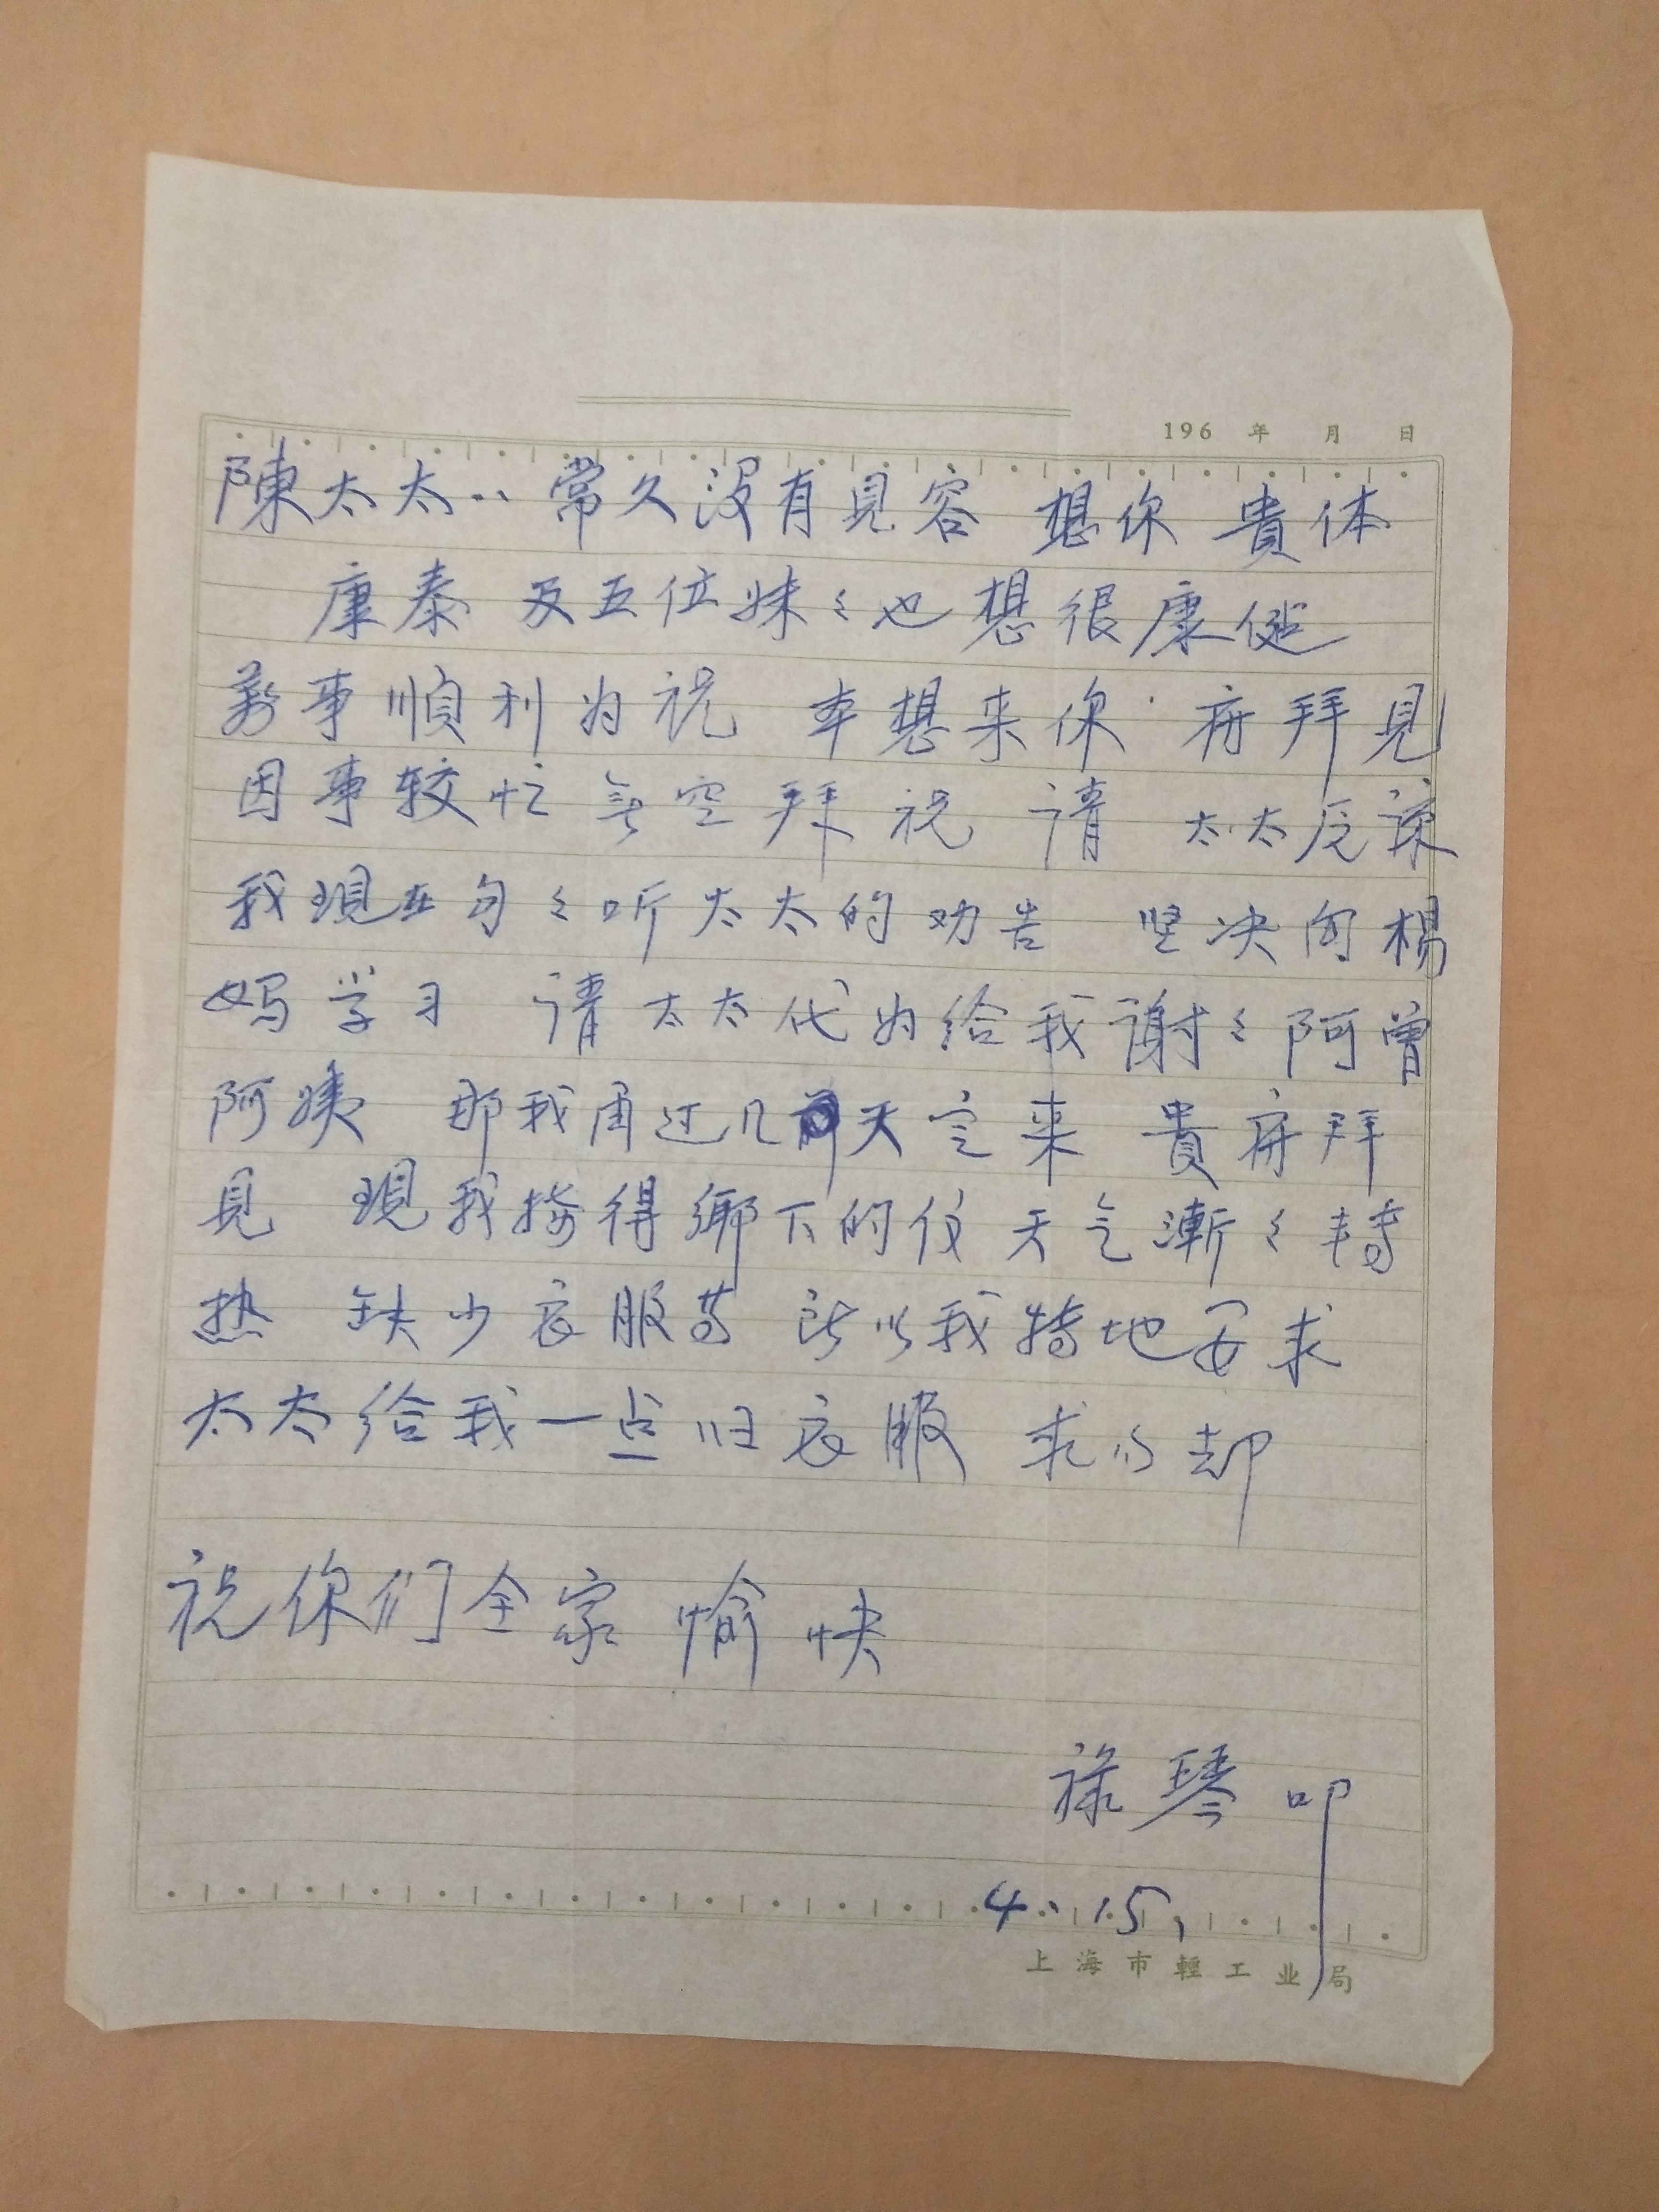 196 年 月 日
陳太太：常久沒有見容 想你 貴体
康泰 及五位妹々也想很康健
萬事順利为祝 本想来你府拜見
因事較忙 無空拜祝 請 太太原諒
我現在句々听太太的劝告 坚决向楊
妈学习 請太太代为给我謝々阿曾
阿姨 那我再过几天定来 貴府拜
見 現我接得鄉下的信 天气漸々轉
热 缺少衣服等 所以我特地要求
太太给我一点旧衣服 求勿却
祝你们全家 愉快
祿琴叩
4.15,
上海市輕工业局